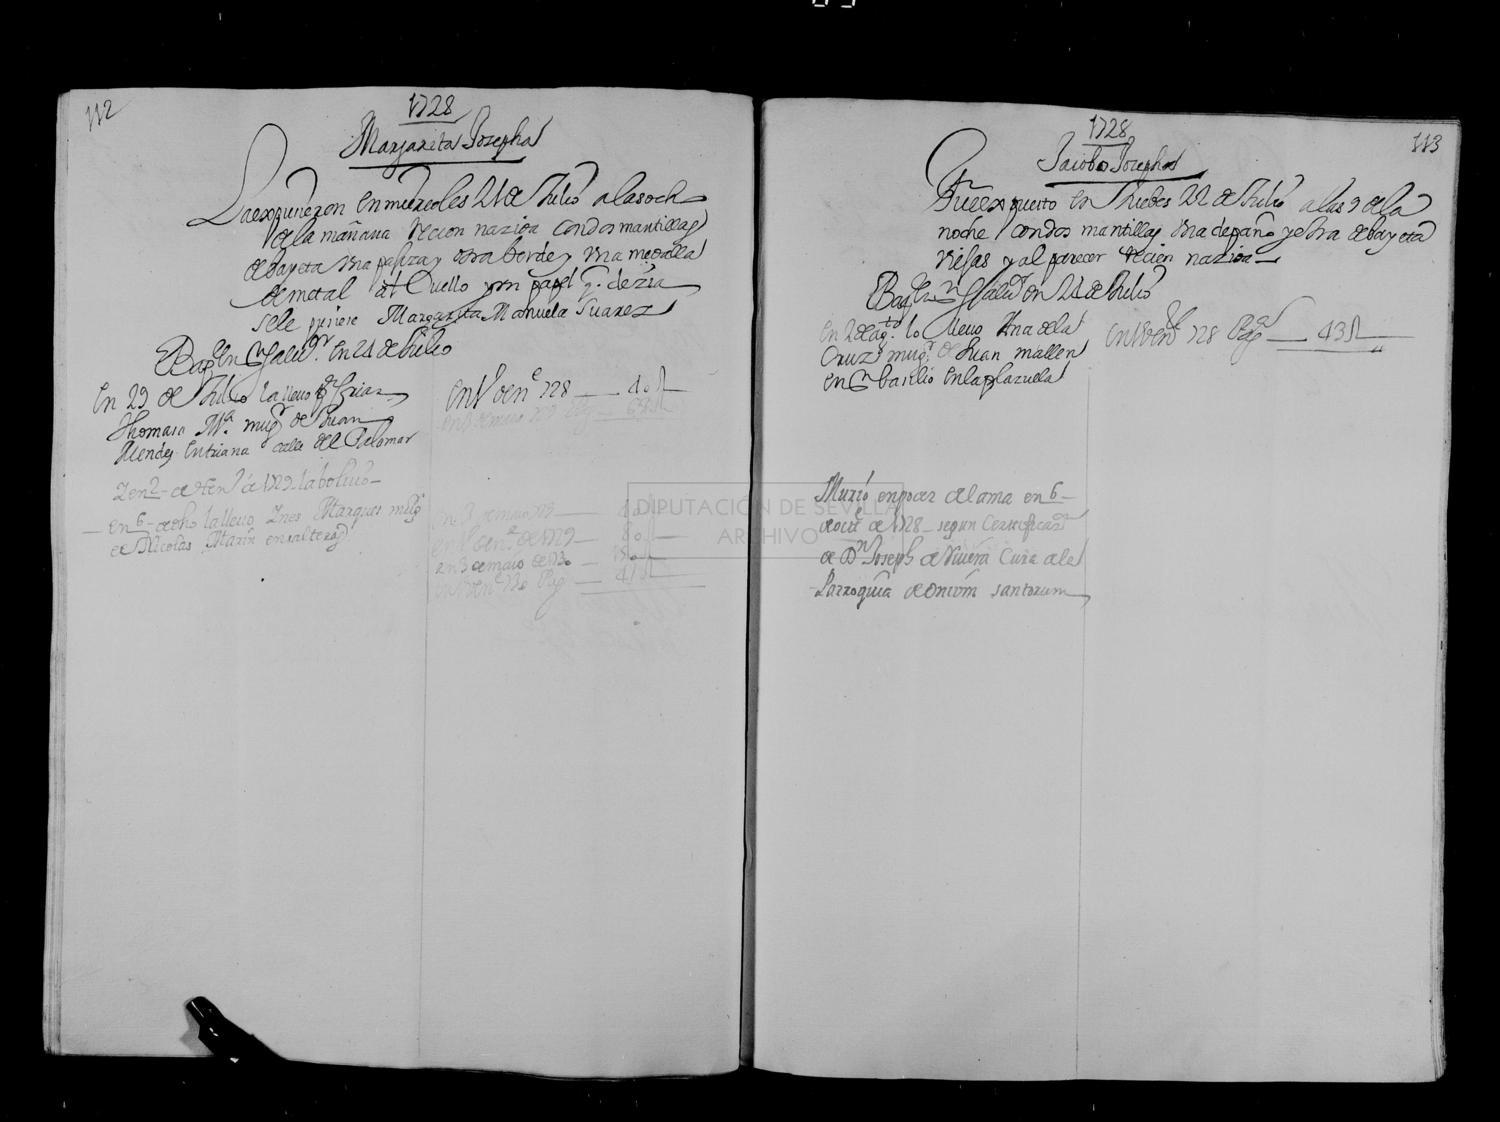 112
1728
Margarita Josepha
La expusieron en miercoles 21 de Jullio a las och
de la mañana recien nazida con dos mantillas
de bayeta una pajiza y otra berde y una medalla
de metal al Cuello y un papel q. dezia
se le pusiese Margarita Manuela Suarez
en 24 de Jullio
En 29 de Jullio la llevo a Criar
Thomasa Mª. mugr de Juan
Mendez en triana calle del Palomar
En 1º de enº 728 — 40
Y en 2 de Henº de 1729 la bolvio
en 6 de dho la llevo Ines Marques mugr
de Nicolas Marin en salteras
en 3 de maio 729
en 1º de enº de 1729 — 80
en 3 de maio de 1730
113
1728
Jacobo Joseph
Fue expuesto en Juebes 22 de Jullio a las 9 de la
noche con dos mantillas una de paño y otra de bayeta
viejas y al parecer recien nazido
en 24 de Jullio
En 2 de agto lo llevo Ana de la
Cruz mugr de Juan mallen
en Sn basilio en la plazuela
728 — 43
Murió en poder de la ama en 6
de octe de 1728 segun Certificazn
de Dn Joseph de Rivera Cura de la
Parroquia de Omnium santorum
DIPUTACIÓN DE SEVILLA
ARCHIVO